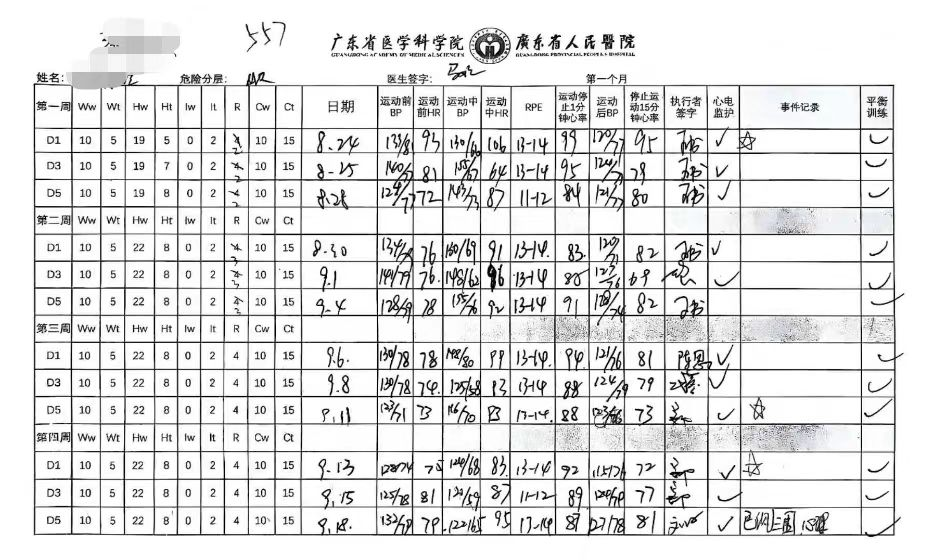 557
广东省医学科学院 廣東省人民醫院
GUANGDONG ACADEMY OF MEDICAL SCIENCES GUANGDONG PROVINCIAL PEOPLE'S HOSPITAL
姓名: 危险分层: 医生签字: 第一个月
第一周 Ww Wt Hw Ht Iw It R Cw Ct 日期 运动前BP 运动前HR 运动中BP 运动中HR RPE 运动停止1分钟心率 运动后BP 停止运动15分钟心率 执行者签字 心电监护 事件记录 平衡训练
D1 10 5 19 5 0 2 2 10 15 8.24 133/81 93 130/66 106 13-14 99 120/77 95 ✓ ☆ ✓
D3 10 5 19 7 0 2 2 10 15 8-25 81 155/67 64 13-14 95 79 ✓ ✓
D5 10 5 19 8 0 2 2 10 15 8.28 124/77 72 143/73 87 11-12 84 121/77 80 ✓ ✓
第二周 Ww Wt Hw Ht Iw It R Cw Ct
D1 10 5 22 8 0 2 3 10 15 8.30 76 130/69 91 13-14 83 82 ✓ ✓
D3 10 5 22 8 0 2 3 10 15 9.1 141/79 76 148/62 96 13-14 69 ✓ ✓
D5 10 5 22 8 0 2 3 10 15 9.4 128/79 78 155/76 92 13-14 91 128/74 82 ✓
第三周 Ww Wt Hw Ht Iw It R Cw Ct
D1 10 5 22 8 0 2 4 10 15 9.6 130/78 78 148/80 99 13-14 94 121/76 81 ✓ ✓
D3 10 5 22 8 0 2 4 10 15 9.8 130/78 74 125/58 93 13-14 88 124/79 79 ✓ ✓
D5 10 5 22 8 0 2 4 10 15 9.11 123/71 73 116/70 93 13-14 88 73 ✓ ☆ ✓
第四周 Ww Wt Hw Ht Iw It R Cw Ct
D1 10 5 22 8 0 2 4 10 15 9.13 128/74 75 120/68 83 13-14 92 115/76 72 ✓ ☆ ✓
D3 10 5 22 8 0 2 4 10 15 9.15 125/78 81 120/59 87 11-12 89 77 ✓ ✓
D5 10 5 22 8 0 2 4 10 15 9.18 132/79 79 122/65 95 13-14 87 127/78 81 ✓ ✓